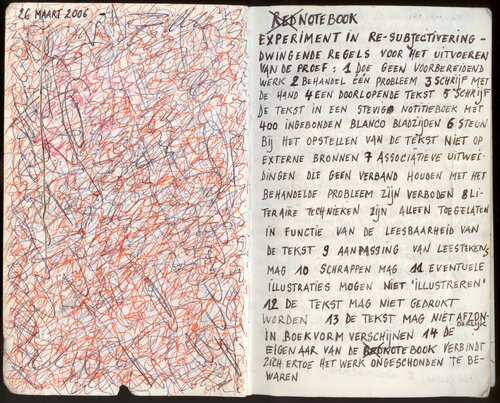 26 MAART 2006
REDNOTEBOOK
EXPERIMENT IN RE-SUBJECTIVERING -
DWINGENDE REGELS VOOR HET UITVOEREN
VAN DE PROEF : 1 DOE GEEN VOORBEREIDEND
WERK 2 BEHANDEL EEN PROBLEEM 3 SCHRIJF MET
DE HAND 4 EEN DOORLOPENDE TEKST 5 SCHRIJF
DE TEKST IN EEN STEVIG NOTITIEBOEK MET
400 INGEBONDEN BLANCO BLADZIJDEN 6 STEUN
BIJ HET OPSTELLEN VAN DE TEKST NIET OP
EXTERNE BRONNEN 7 ASSOCIATIEVE UITWEI-
DINGEN DIE GEEN VERBAND HOUDEN MET HET
BEHANDELDE PROBLEEM ZIJN VERBODEN 8 LI-
TERAIRE TECHNIEKEN ZIJN ALLEEN TOEGELATEN
IN FUNCTIE VAN DE LEESBAARHEID VAN
DE TEKST 9 AANPASSING VAN LEESTEKENS
MAG 10 SCHRAPPEN MAG 11 EVENTUELE
ILLUSTRATIES MOGEN NIET 'ILLUSTREREN'
12 DE TEKST MAG NIET GEDRUKT
WORDEN 13 DE TEKST MAG NIET AFZON-
DERLIJK
IN BOEKVORM VERSCHIJNEN 14 DE
EIGENAAR VAN DE REDNOTEBOOK VERBINDT
ZICH ERTOE HET WERK ONGESCHONDEN TE BE-
WAREN